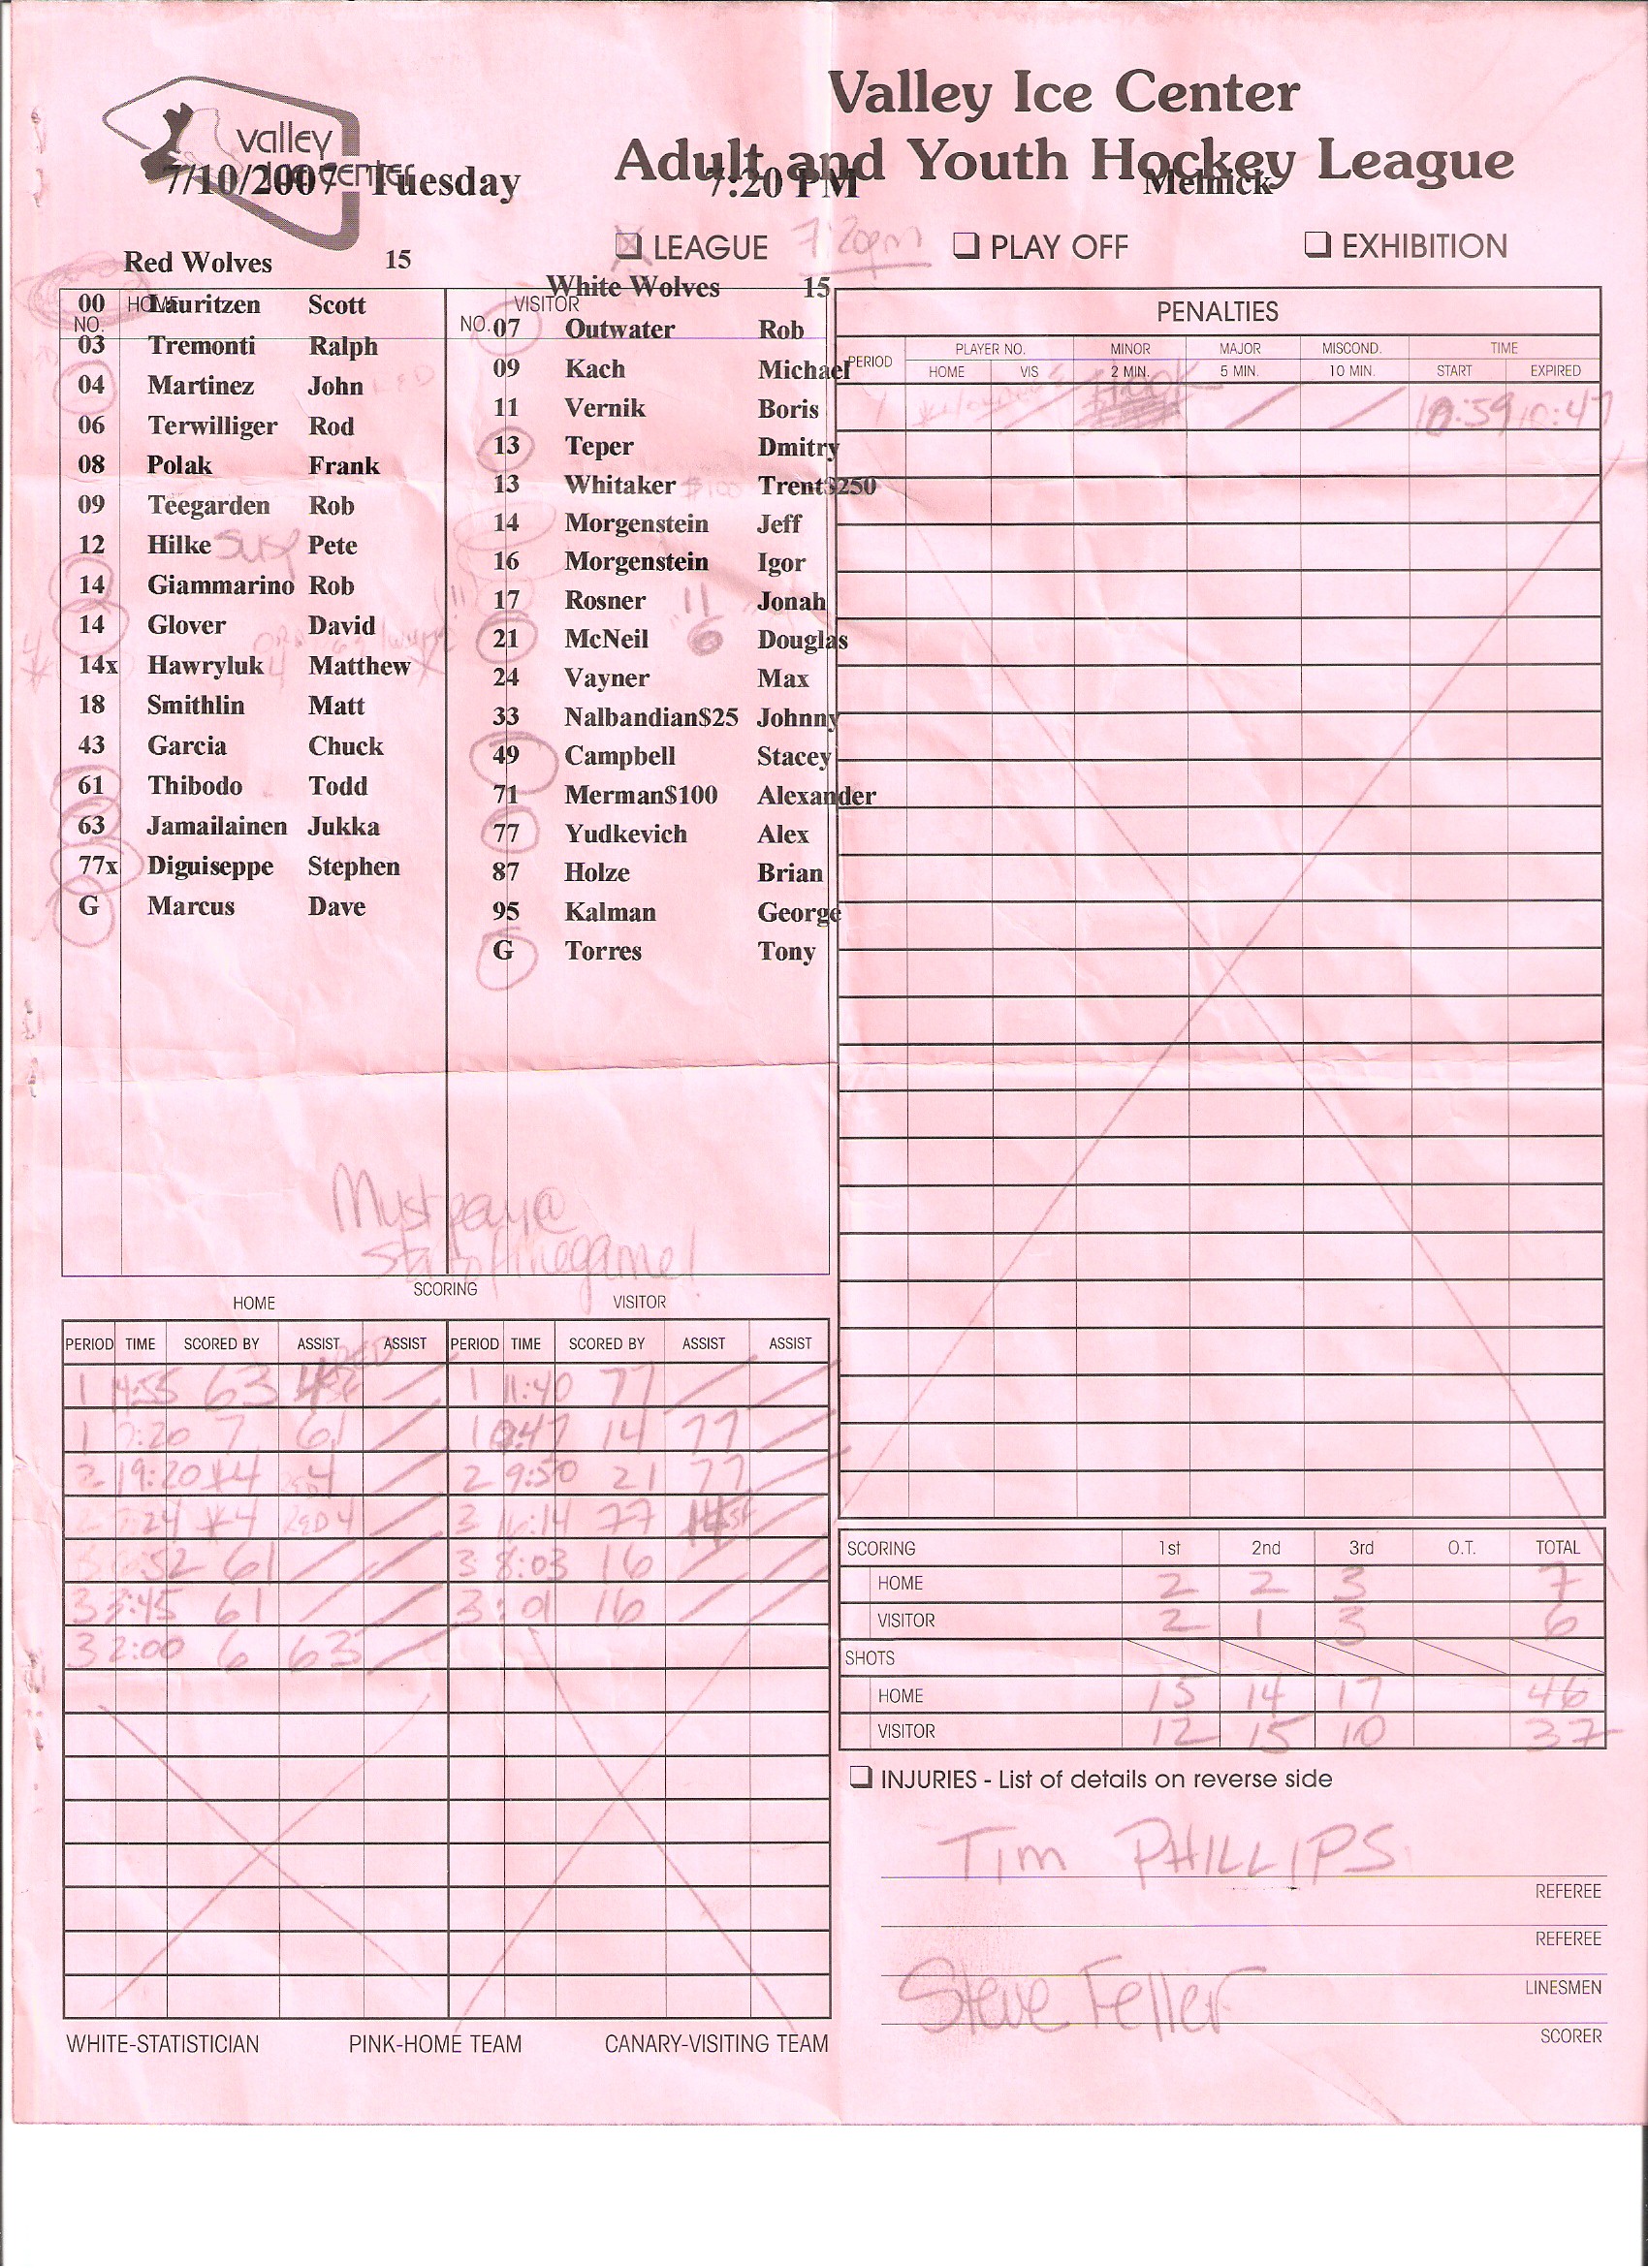 Valley Ice Center
valley
ice center
Adult and Youth Hockey League
7/10/2007 Tuesday 7:20 PM Melnick
LEAGUE 7:20pm PLAY OFF EXHIBITION
Red Wolves 15
White Wolves 15
HOME VISITOR
NO. NO.
00 Lauritzen Scott
03 Tremonti Ralph
04 Martinez John RED
06 Terwilliger Rod
08 Polak Frank
09 Teegarden Rob
12 Hilke Pete
14 Giammarino Rob
14 Glover David
14x Hawryluk 4 Matthew
18 Smithlin Matt
43 Garcia Chuck
61 Thibodo Todd
63 Jamailainen Jukka
77x Diguiseppe Stephen
G Marcus Dave
07 Outwater Rob
09 Kach Michael
11 Vernik Boris
13 Teper Dmitry
13 Whitaker $100 Trent$250
14 Morgenstein Jeff
16 Morgenstein Igor
17 Rosner 11 Jonah
21 McNeil 6 Douglas
24 Vayner Max
33 Nalbandian$25 Johnny
49 Campbell Stacey
71 Merman$100 Alexander
77 Yudkevich Alex
87 Holze Brian
95 Kalman George
G Torres Tony
Must pay @
start of the game!
PENALTIES
PERIOD PLAYER NO. MINOR MAJOR MISCOND. TIME
HOME VIS 2 MIN. 5 MIN. 10 MIN. START EXPIRED
1 10:59 10:47
SCORING
HOME VISITOR
PERIOD TIME SCORED BY ASSIST ASSIST PERIOD TIME SCORED BY ASSIST ASSIST
1 14:55 63 4 RED 1 11:40 77
1 7:20 7 61 1 10:47 14 77
2 19:20 *4 RED 4 2 9:50 21 77
2 7:24 *4 RED 4 3 16:14 77 14
3 :52 61 3 8:03 16
3 3:45 61 3 :01 16
3 2:00 6 63
SCORING 1st 2nd 3rd O.T. TOTAL
HOME 2 2 3 7
VISITOR 2 1 3 6
SHOTS
HOME 15 14 17 46
VISITOR 12 15 10 37
INJURIES - List of details on reverse side
Tim PHILLIPS
REFEREE
REFEREE
LINESMEN
Steve Feller
SCORER
WHITE-STATISTICIAN PINK-HOME TEAM CANARY-VISITING TEAM